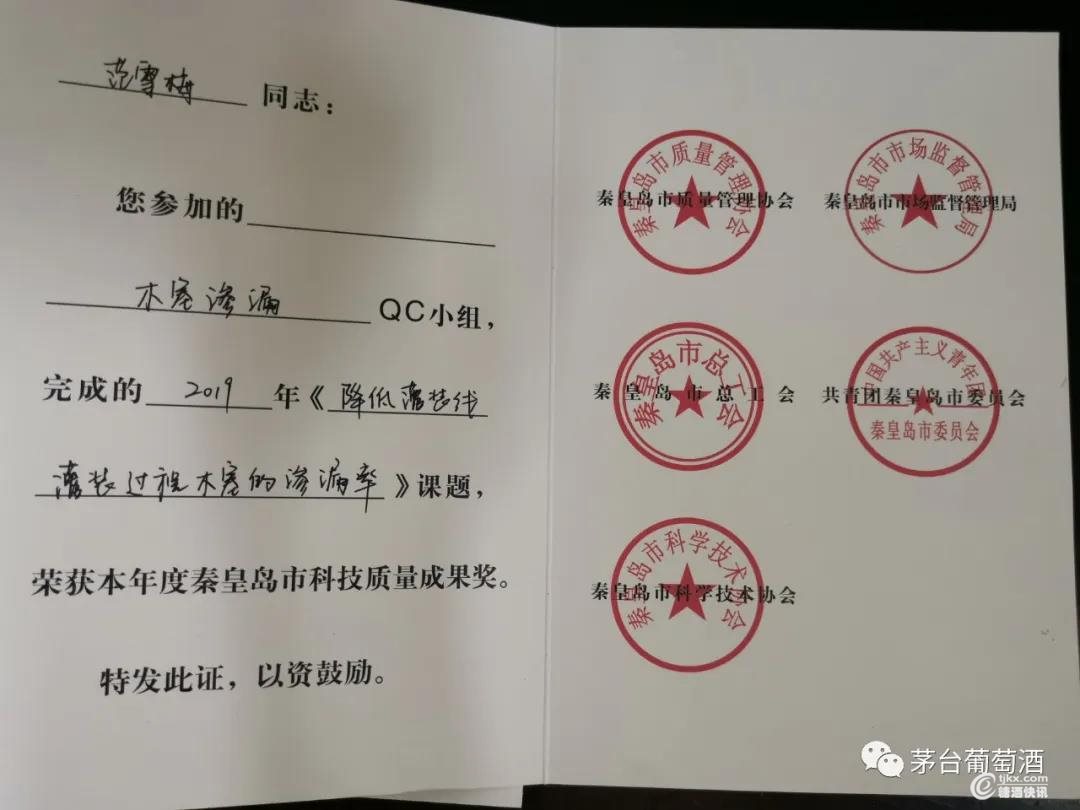 范雪梅 同志：
您参加的
木塞渗漏 QC小组，
完成的 2019 年《降低灌装线
灌装过程木塞的渗漏率》课题，
荣获本年度秦皇岛市科技质量成果奖。
特发此证，以资鼓励。
秦皇岛市质量管理协会
秦皇岛市质量管理协会
秦皇岛市市场监督管理局
秦皇岛市市场监督管理局
秦皇岛市总工会
秦皇岛市总工会
中国共产主义青年团
共青团秦皇岛市委员会
秦皇岛市委员会
秦皇岛市科学技术协会
秦皇岛市科学技术协会
茅台葡萄酒
tjkx.com
糖酒快讯